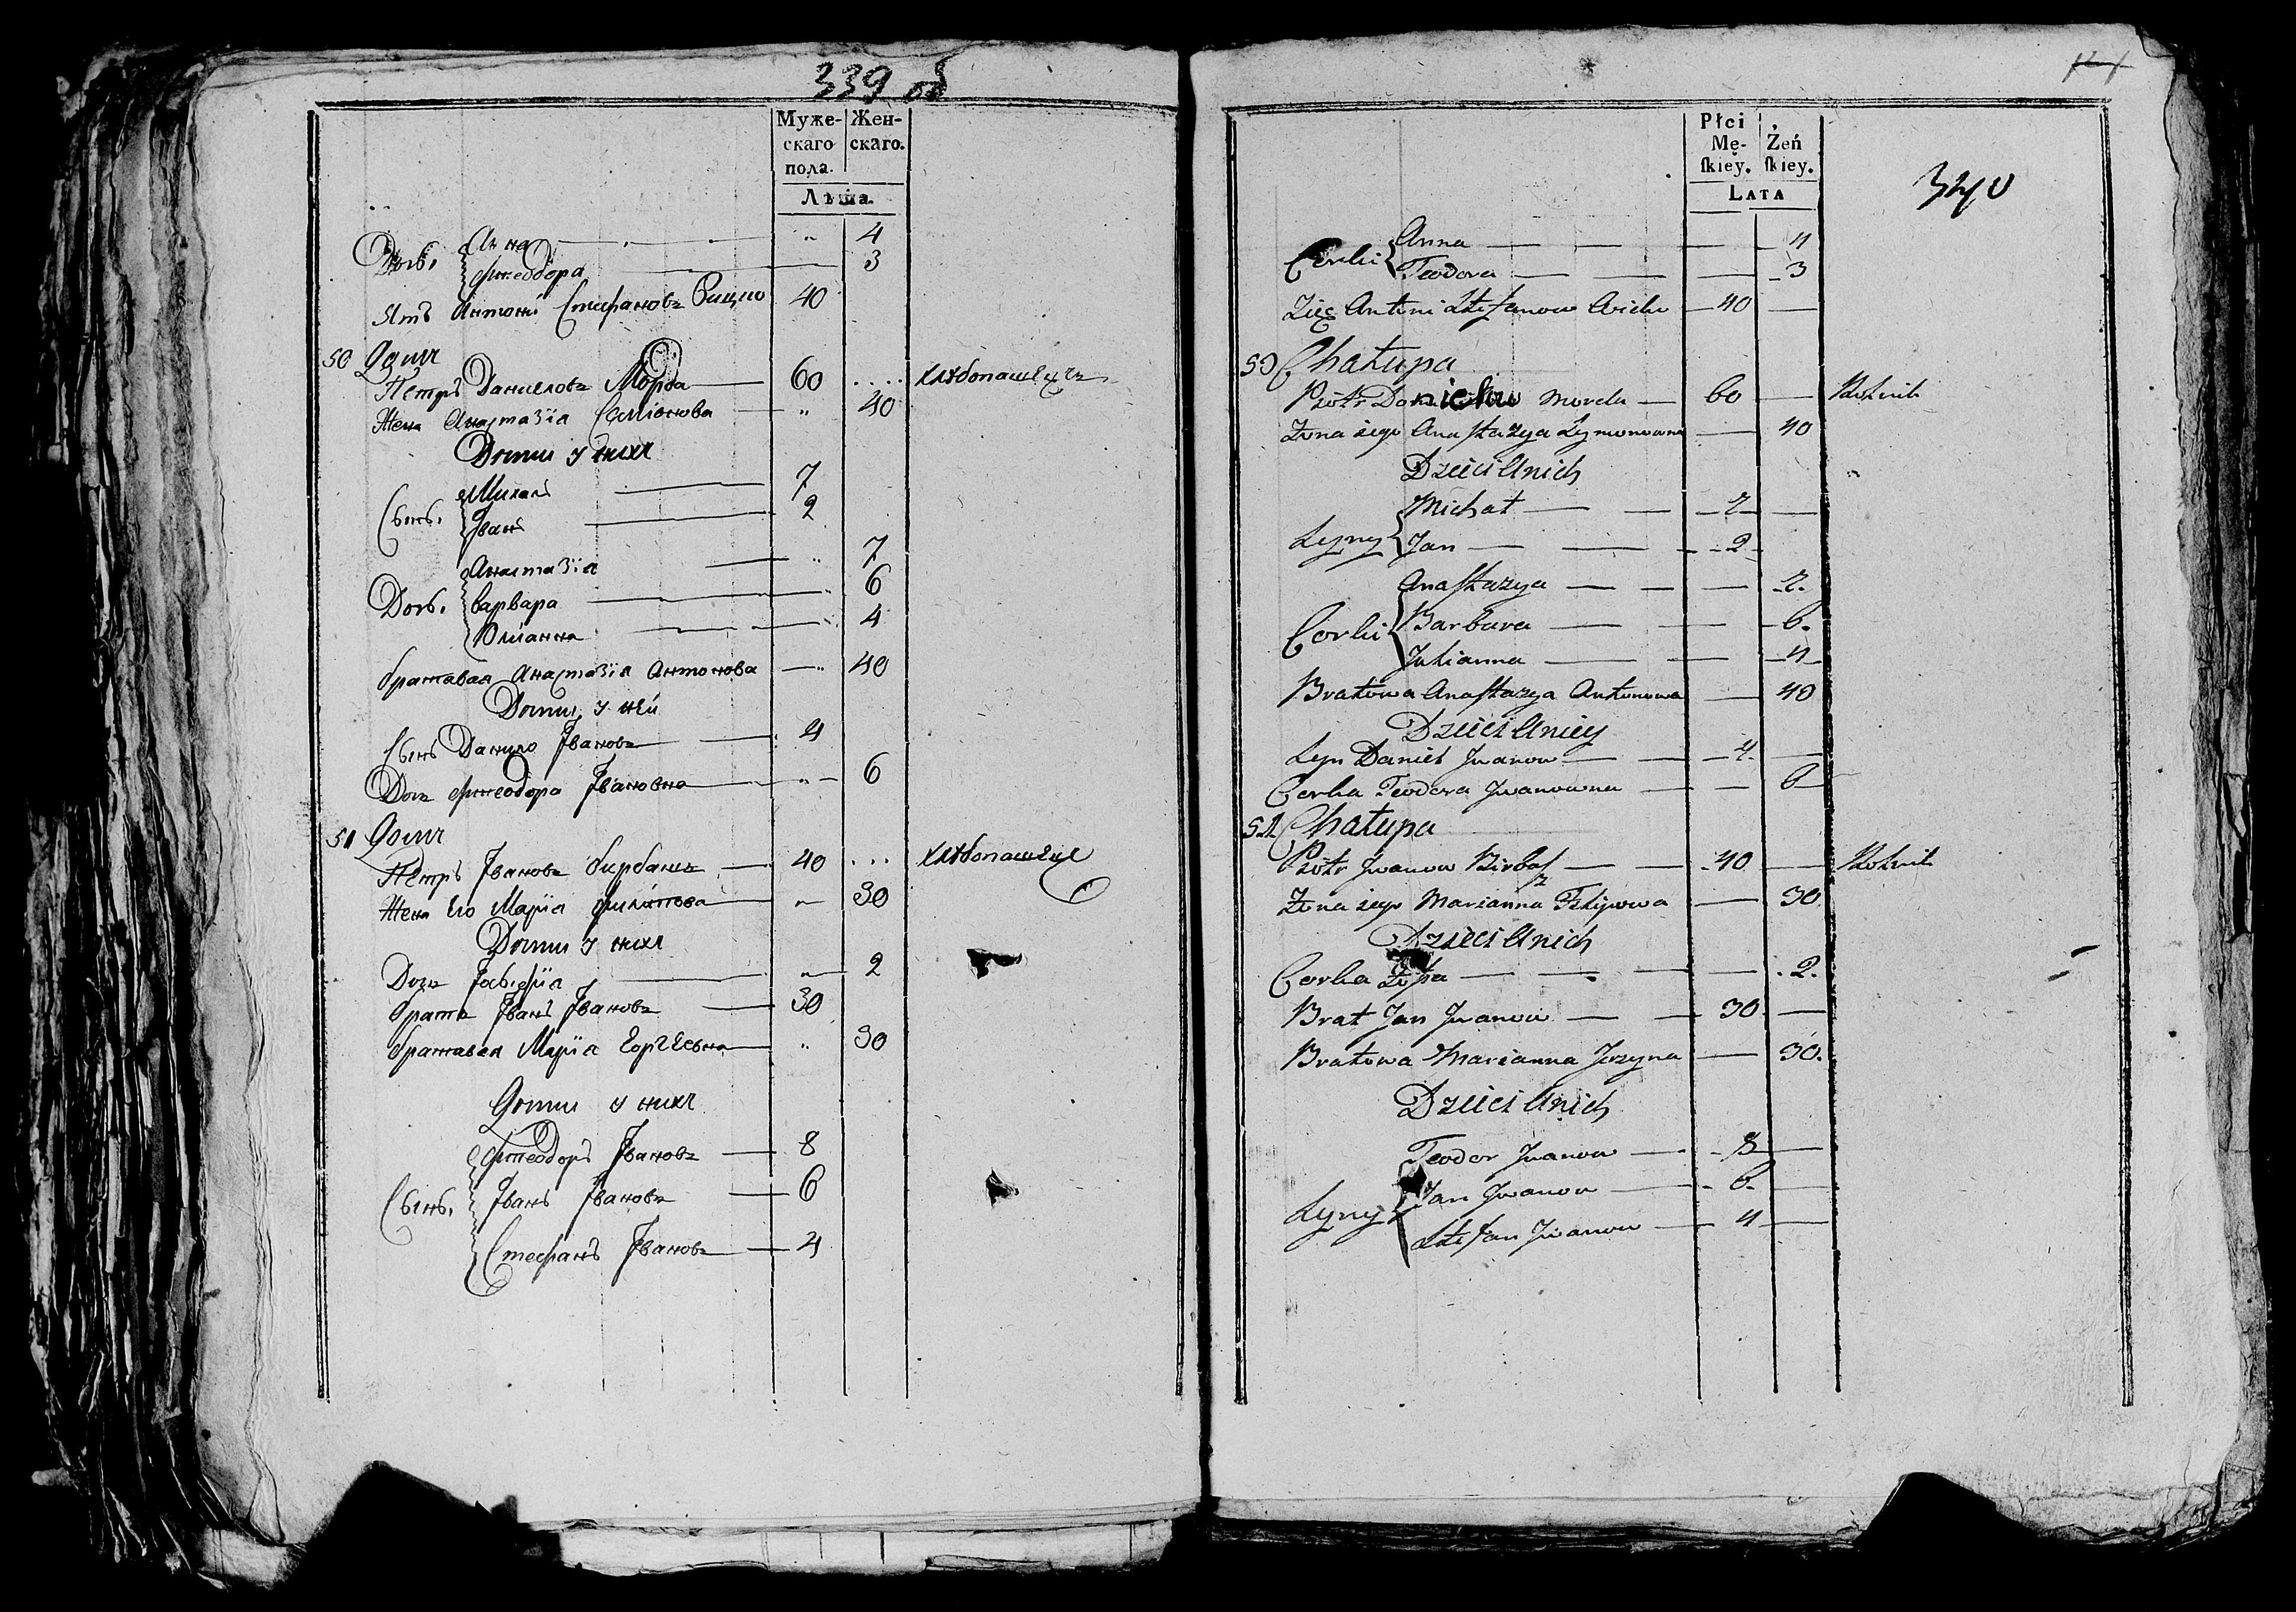 339 об
Муже-
скаго
пола.
Жен-
скаго.
Лѣта.
Дочь. Анна 4
Ѳтеодора 3
Ять Антони Стефановъ 40
50 Домъ
Петръ Даниловъ Морда 60 хлѣбопашецъ
Жена Анастазіа Семіонова 40
Дѣти у нихъ
Сынъ. Михалъ 7
Іванъ 2
Анастазіа 7
Дочь. Варвара 6
Юліанна 4
Братавая Анастазіа Антонова 40
Дѣти у ней
Сынъ Данило Івановъ 4
Дочь Ѳтеодора Івановна 6
51 Домъ
Петръ Івановъ Бирбашъ 40 хлѣбопашецъ
Жена Его Маріа Филипова 30
Дѣти у нихъ
Дочь 2
Братъ Іванъ Івановъ 30
Братавая Маріа 30
Дѣти у нихъ
Ѳтеодоръ Івановъ 8
Сынъ. Іванъ Івановъ 6
Стефанъ Івановъ 4
Płci
Mę-
skiey.
Żeń
skiey.
LATA
340
Corki Anna 4
Teodora 3
Zięć Antoni Stefanow 40
50 Chałupa
Piotr Danielow Morda 60 Rolnik
Żona iego Anastazya Symonowna 40
Dzieci Unich
Michał 7
Syny Jan 2
Anastazya 7
Corki Barbara 6
Julianna 4
Bratowa Anastazya Antonowa 40
Dzieci Uniey
Syn Daniel Jwanow 4
Corka Teodora Jwanowna 6
51 Chałupa
Piotr Jwanow Birbasz 40 Rolnik
Żona iego Marianna Filipowa 30
Dzieci Unich
Corka Zofia 2
Brat Jan Jwanow 30
Bratowa Marianna 30
Dzieci Unich
Teodor Jwanow 8
Syny Jan Jwanow 6
Stefan Jwanow 4